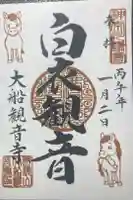 奉拝
丙午年
一月二日
白衣観音
大船観音寺